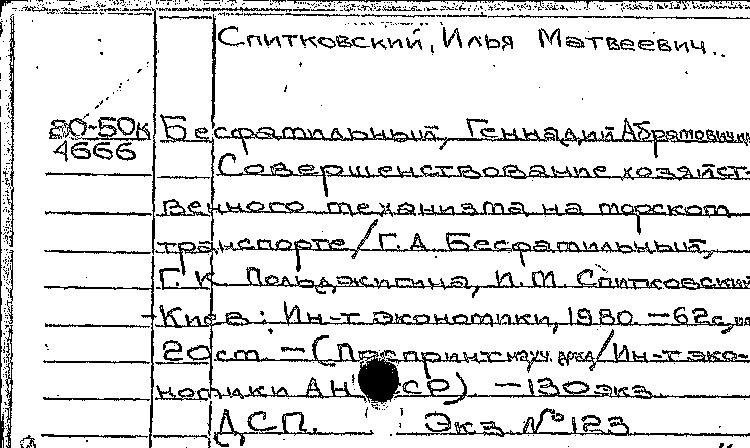 Спитковский, Илья Матвеевич..
80-50к
4666
Бесфамильный, Геннадий Абрамович
Совершенствование хозяйст-
венного механизма на морском
транспорте/Г.А. Бесфамильный,
Г. К. Польджигина, И.М. Спитковский
-Киев: Ин-т экономики, 1980. -62с,
20см. -(Препринт науч. докл/Ин-т эко-
номики АН СР) -130экз.
ДСП. Экз №123